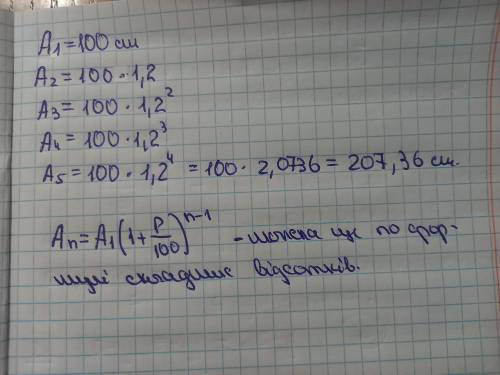 A₁ = 100 см
A₂ = 100 · 1,2
A₃ = 100 · 1,2²
A₄ = 100 · 1,2³
A₅ = 100 · 1,2⁴ = 100 · 2,0736 = 207,36 см.
Aₙ = A₁(1 + P/100)ⁿ⁻¹ - можна ще по фор-
мулі складних відсотків.